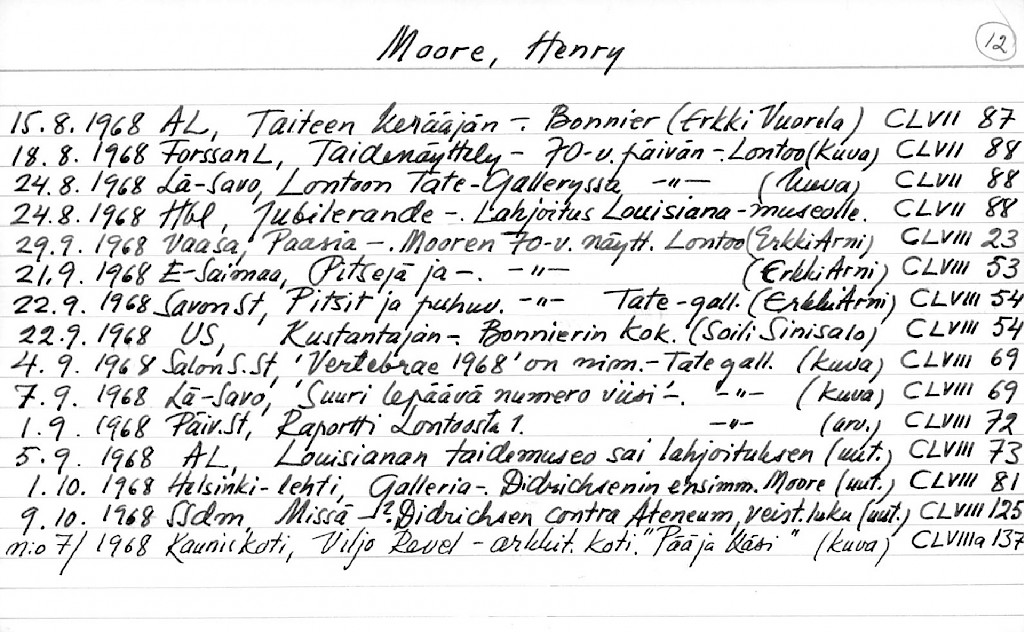 Moore, Henry
12
15.8.1968 AL, Taiteen kerääjän -. Bonnier (Erkki Vuorela) CLVII 87
18.8.1968 Forssan L, Taidenäyttely - 70-v. päivän -. Lontoo (kuva) CLVII 88
24.8.1968 Lä-Savo, Lontoon Tate-Galleryssa, -"- (kuva) CLVII 88
24.8.1968 Hbl, Jubilerande -. Lahjoitus Louisiana-museolle. CLVII 88
29.9.1968 Vaasa, Paasia -. Mooren 70-v. näytt. Lontoo (Erkki Arni) CLVIII 23
21.9.1968 E-Saimaa, Pitsejä ja -. -"- (Erkki Arni) CLVIII 53
22.9.1968 Savon St, Pitsit ja puhuv. -"- Tate-gall. (Erkki Arni) CLVIII 54
22.9.1968 US, Kustantajan -. Bonnierin kok. (Soili Sinisalo) CLVIII 54
4.9.1968 Salon S.St, 'Vertebrae 1968' on nim. - Tate gall. (kuva) CLVIII 69
7.9.1968 Lä-Savo, 'Suuri lepäävä numero viisi' -. -"- (kuva) CLVIII 69
1.9.1968 Päiv.St, Raportti Lontoosta 1. -"- (arv.) CLVIII 72
5.9.1968 AL, Louisianan taidemuseo sai lahjoituksen (uut.) CLVIII 73
1.10.1968 Helsinki-lehti, Galleria -. Didrichsenin ensimm. Moore (uut.) CLVIII 81
9.10.1968 SSdm, Missä -? Didrichsen contra Ateneum, veist. luku (uut.) CLVIII 125
n:o 7/1968 Kaunis koti, Viljo Revel - arkkit. koti. "Pää ja käsi" (kuva) CLVIIIa 137